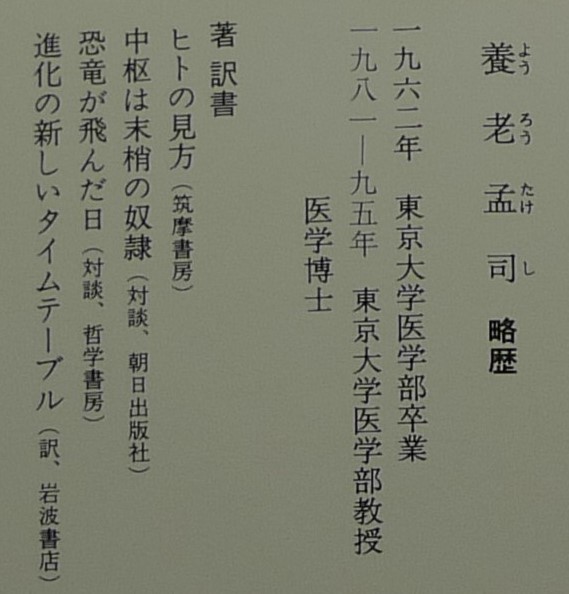 養老孟司略歴
ようろうたけし
一九六二年　東京大学医学部卒業
一九八一—九五年　東京大学医学部教授
医学博士
著訳書
ヒトの見方（筑摩書房）
中枢は末梢の奴隷（対談、朝日出版社）
恐竜が飛んだ日（対談、哲学書房）
進化の新しいタイムテーブル（訳、岩波書店）